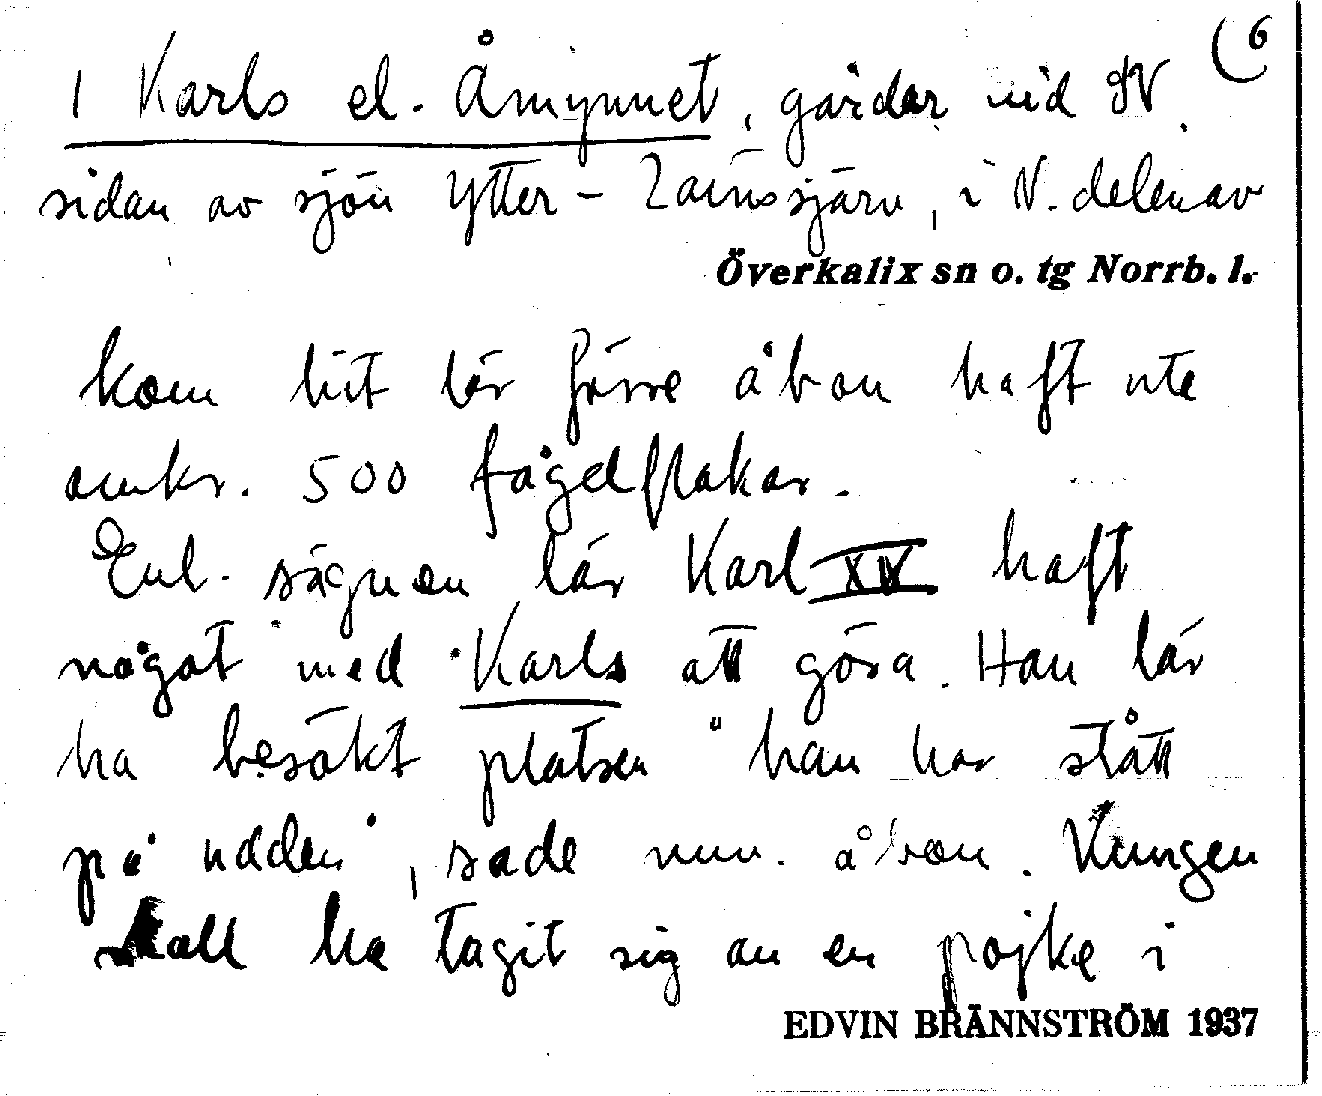 (6
1 Karls el. Åmynnet, gårdar vid SV.
sidan av sjön Ytter-Lainsjärv, i N. delen av
Överkalix sn o. tg Norrb. l.
kom hit lär förre åbon haft ute
omkr. 500 fågelflakar.
Enl. sägnen lär Karl XIV haft
något med Karls att göra. Han lär
ha besökt platsen "han har stått
på udden", sade nuv. åbon. Kungen
skall ha tagit sig an en pojke i
EDVIN BRÄNNSTRÖM 1937